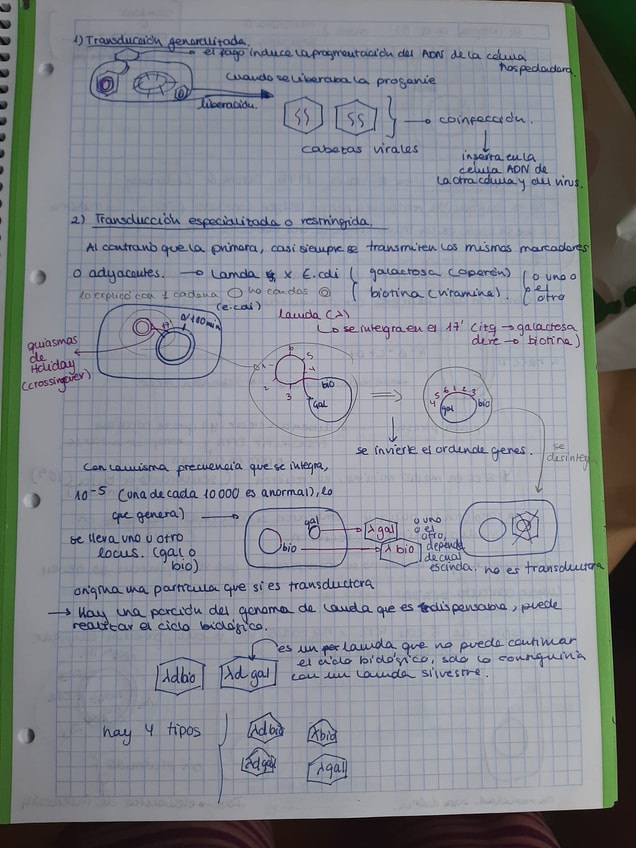 1) Transducción generalizada.
→ el fago induce la fragmentación del ADN de la celula
hospedadora.
cuando se liberaba la progenie
liberación.
→ coinfección.
cabezas virales
inserta en la
celula ADN de
la otra celula y del virus.
2) Transducción especializada o restringida.
Al contrario que la primera, casi siempre se transmiten los mismos marcadores
o adyacentes. → lamda x E.coli ( galactosa (operón) ( o uno o
el
otro
biotina (vitamina).
lo explicó con 1 cadena no con dos
(e.coli)
lamda (λ)
↳ se integra en el 17' (izq → galactosa
dere → biotina)
0/100min
17'
quiasmas
de
Holiday
(crossingover)
6
5
4
1
2
3
bio
gal
⇒
4 5 6 1 2 3
gal
bio
se invierte el orden de genes.
se
desintegra
con la misma frecuencia que se integra,
10-5 (una de cada 10000 es anormal), lo
que genera)
se lleva uno u otro
locus. (gal o
bio)
gal
bio
λgal
λbio
o uno
o el
otro,
depende
de cual
escinda.
no es transductora
origina una particula que si es transductora
→ Hay una porción del genoma de lamda que es dispensable, puede
realizar el ciclo biológico.
es un lamda que no puede continuar
el ciclo biológico, solo lo conseguiría
con un lamda silvestre.
λdbio
λd gal
hay 4 tipos
λdbio
λbio
λdgal
λgal